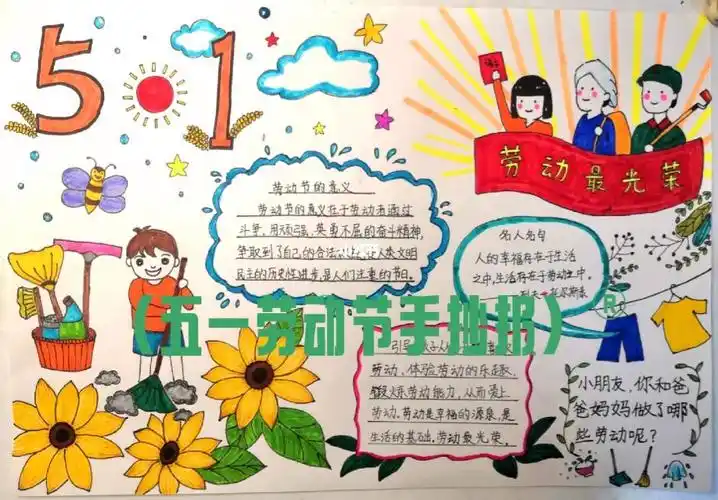 5 1
谢
劳动最光荣
劳动节的意义
劳动节的意义在于劳动者通过
斗争，用顽强、英勇不屈的奋斗精神，
争取到了自己的合法权益，是人类文明
民主的历史性进步，是人们注重的节日。
名人名句
人的幸福存在于生活
之中，生活存在于劳动之中。
列夫·托尔斯泰
（五一劳动节手抄报）
劳动，体验劳动的乐趣，
锻炼劳动能力，从而爱上
劳动。劳动是幸福的源泉，是
生活的基础。劳动最光荣。
小朋友，你和爸
爸妈妈做了哪
些劳动呢？